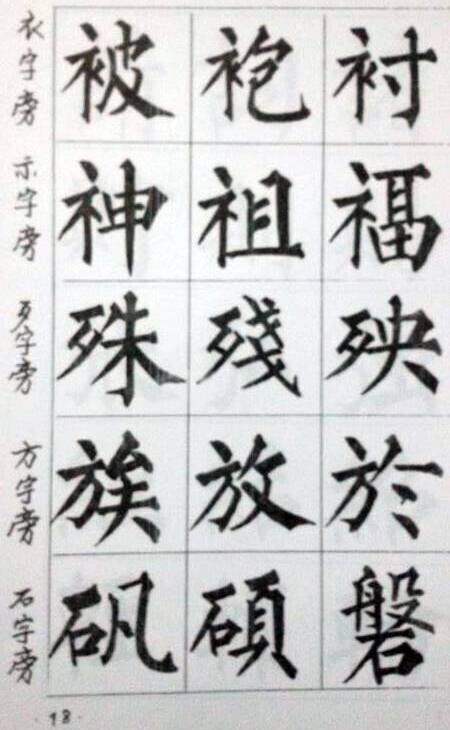 衣字旁 被 袍 衬
示字旁 神 祖 福
歹字旁 殊 殘 殃
方字旁 族 放 於
石字旁 矾 碩 磐
·18·